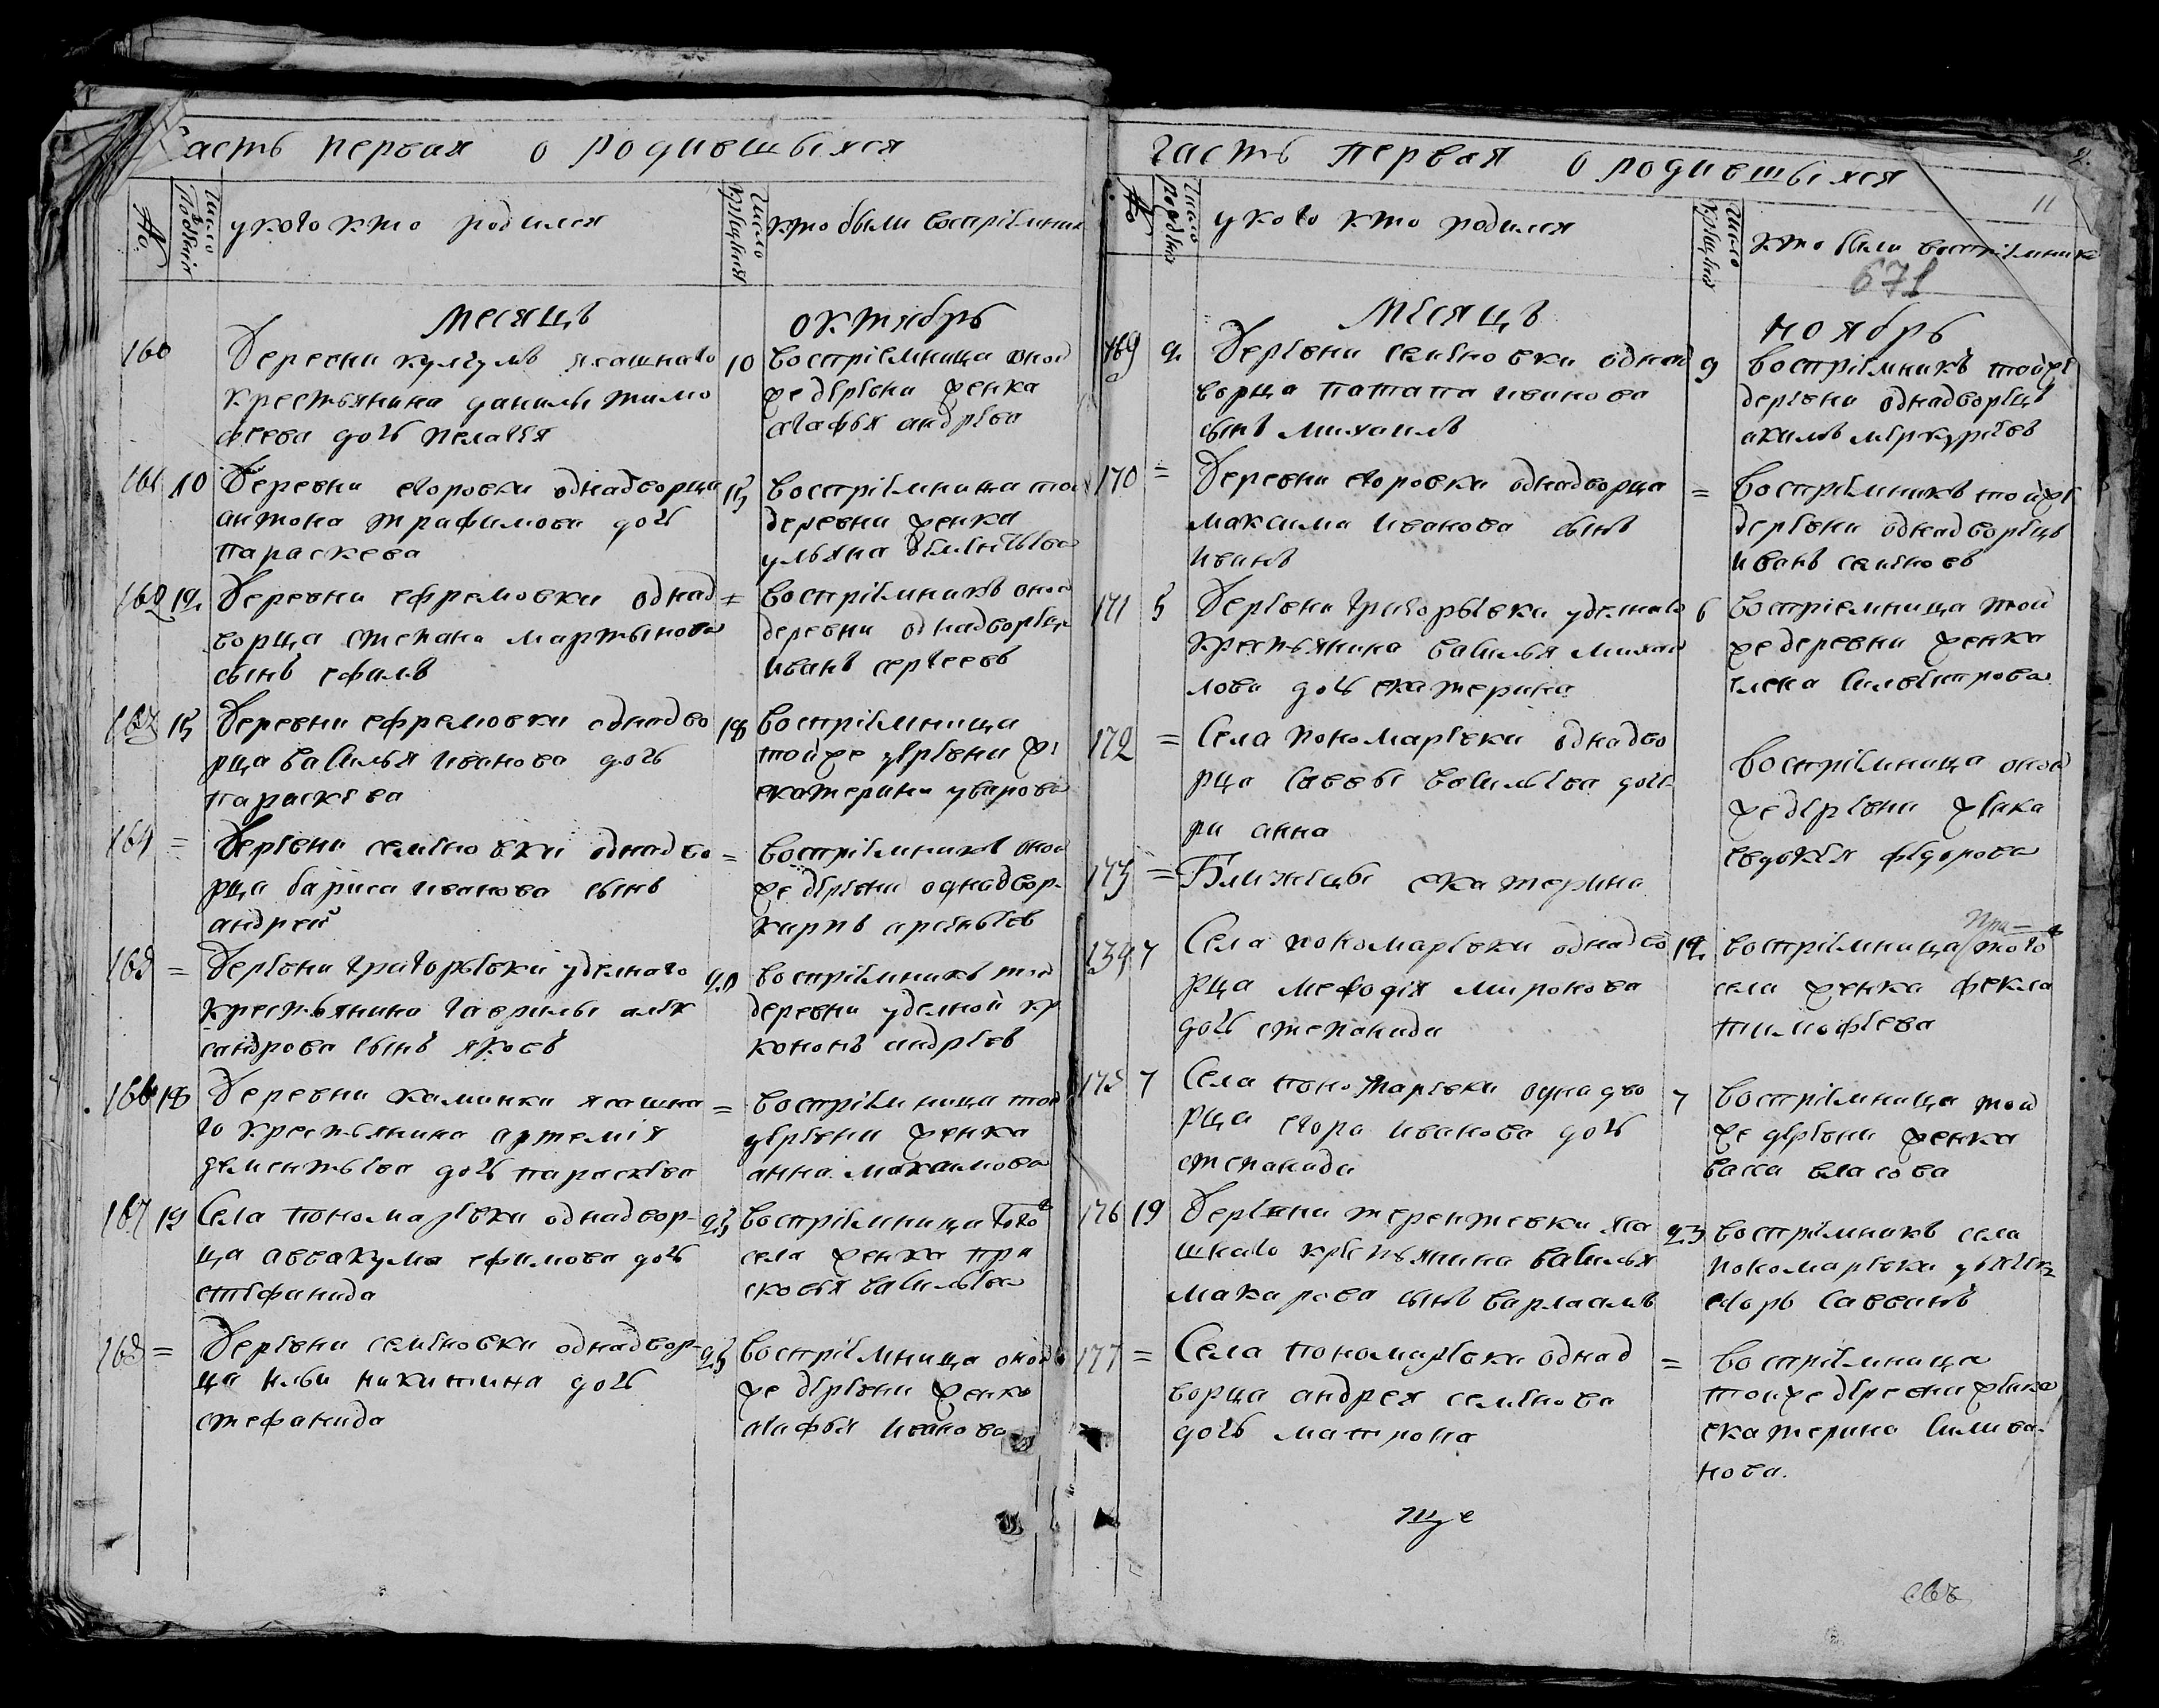 Часть первая о родившыхся
№
Число рождения
у кого кто родился
Число крещения
кто были восприемники
месяцъ октябрь
160
Деревни кулгулъ ясашнаго
крестьянина данилы тимо
феева дочь пелагея
10
восприемница оной
же деревни женка
агафья андреева
161 10
Деревни егоровки однадворца
антона трафимова дочь
параскева
восприемница той
деревни женка
ульяна
162 12
Деревни ефремовки однад
ворца степана мартынова
сынъ ефимъ
=
восприемникъ оной
деревни однадворец
иванъ сергеевъ
163 15
Деревни ефремовки однадво
рца василья иванова дочь
параскева
18
восприемница
тойже деревни же
екатерина уварова
164 =
Деревни семеновки однадво
рца бариса иванова сынъ
андрей
=
восприемникъ оной
же деревни однадвор.
карпъ арсеньевъ
165 =
Деревни григорьевки уделнаго
крестьянина гаврилы алек
сандрова сынъ яковъ
20
восприемникъ той
деревни уделной кр
кононъ андреевъ
166 18
Деревни каминки ясашна
го крестьянина артемия
дементьева дочь параскева
=
восприемница той
деревни женка
анна максимова
167 19
Села пономаревки однадвор-
ца аввакума ефимова дочь
стефанида
23
восприемница того
села женка пра
сковья васильева
168 =
Деревни семеновки однадвор-
ца ильи никитина дочь
стефанида
25
восприемница оной
же деревни женка
агафья иванова
часть первая о родившыхся
11
№
Число рождения
у кого кто родился
Число крещения
кто были восприемники
671
месяцъ ноябрь
169 2
Деревни семеновки однад
ворца патапа иванова
сынъ михаилъ
9
восприемникъ тойже
деревни однадворецъ
акимъ меркурьевъ
170 =
Деревни егоровки однадворца
максима иванова сынъ
иванъ
=
восприемникъ тойже
деревни однадворецъ
иванъ семеновъ
171 5
Деревни григорьевки уделнаго
крестьянина василья михаи
лова дочь екатерина
6
восприемница той
же деревни женка
елена силвестрова
172 =
Села пономаревки однадво
рца саввы васильева доче-
ри анна
восприемница оной
же деревни женка
евдокея федорова
173 =
Близнецы екатерина
174 7
Села пономаревки однадво
рца мефодия миронова
дочь степанида
12
восприемница того
села женка фекла
тимофеева
175 7
Села пономаревки однадво
рца егора иванова дочь
степанида
7
восприемница той
же деревни женка
васса власова
176 19
Деревни терентевки яса
шнаго крестьянина василья
макарова сынъ варлаамъ
23
восприемникъ села
пономаревки дьячек
егоръ саввинъ
177 =
Села пономаревки однад
ворца андрея семенова
дочь матрона
=
восприемница
тойже деревни женка
екатерина силива-
нова.